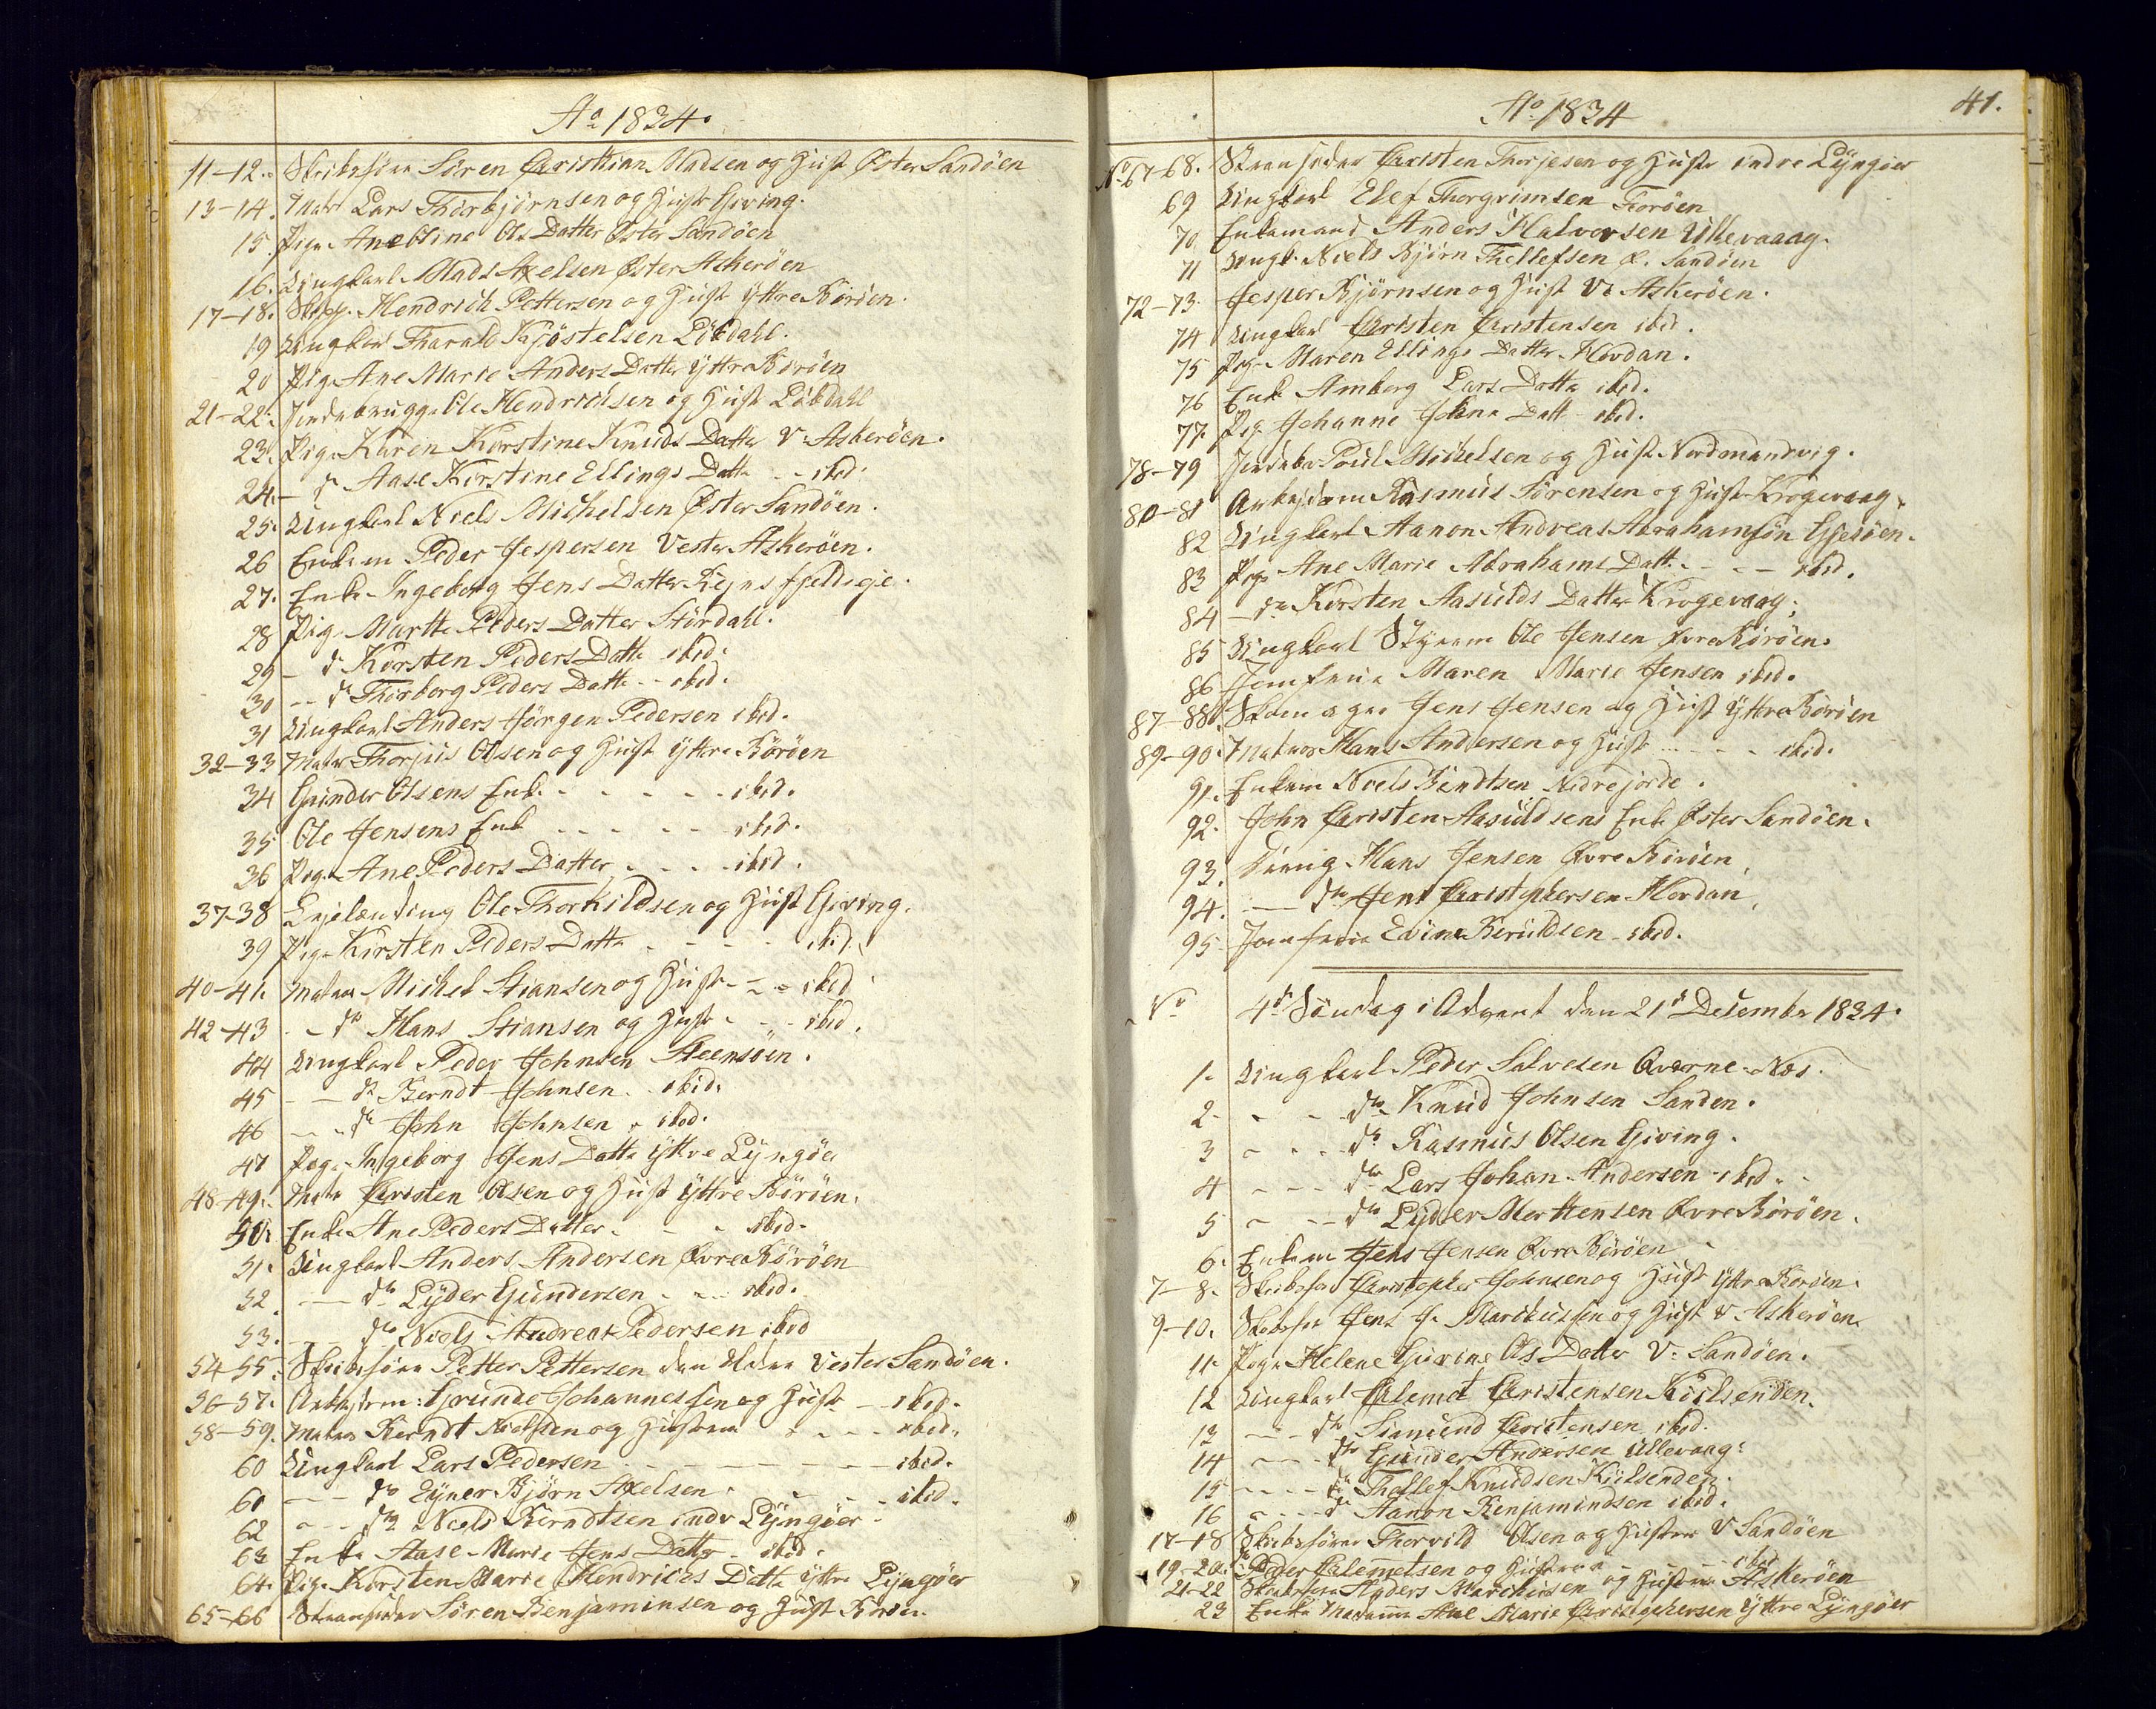 Ao 1834.
11-12. Skibsfører Søren Christian Madsen og Hust Øster Sandøen
13-14. Matr Lars Thorbjørnsen og Hustr Giving.
15. Pige Ane Stine Ols Datter Øster Sandøen
16. Ungkarl Mads Axelsen Øster Askerøen
17-18. Skipp. Hendrich Pettersen og Hust Yttre Børøen.
19 Ungkarl Tharald Kjøstelsen Löbdahl.
20 Pige Ane Marie Anders Datter Yttre Børøen
21-22. Jordebrugge Ole Hendrichsen og Hust Löbdahl
23. Pige Karen Kirstine Knuds Datter V. Askerøen.
24. - dο Aase Kirstine Ellings Datte - ibid.
25. Ungkarl Niels Michelsen Øster Sandøen.
26 Enkem Peder Jespersen Vester Askerøen.
27. Enke Ingeborg Jens Datter fjeldeje.
28 Pige Marthe Peders Datter Stördahl.
29 - do Kirsten Peders Datte ibid.
30 - do Thorborg Peders Datte - ibid.
31 Ungkarl Anders Jørgen Pedersen ibid.
32-33 Matr Thorjus Olsen og Hust Yttre Börøen
34 Gunder Olsens Enke - - - - ibid.
35 Ole Jensens Enk - - - - ibid.
36 Pige Ane Peders Datter - - - ibid.
37-38 Lejelænding Ole Thorkildsen og Hust Giving.
39 Pige Kirsten Peders Datte - - - ibid.
40-41. Matros Michel Stiansen og Hustr - - ibid
42-43 - do Hans Stiansen og Hustr - - ibid.
44 Ungkarl Peder Johnsen Steensöen.
45 - do Berndt Johnsen - ibid.
46 - - do John Johnsen - ibid.
47 Pige Ingeborg Jens Datte Yttre Lyngøer
48-49. Matr Christen Olsen og Hust Yttre Börøen.
50. Enke Ane Peders Datter - - ibid.
51. Ungkarl Anders Andersen Øvre Börøen
52. - do Lyder Gundersen - - ibid.
53. - - do Niels Andreas Pedersen ibid
54-55. Skibsføre Petter Pettersen den Vester Sandøen.
56-57. Arbejdsm: Grunde Johannessen og Hustr - ibid.
58-59. Matros Berndt Nielsen og Hustrue - - - ibid.
60 Ungkarl Lars Pedersen - - - - - ibid.
61 - - do Ejner Bjørn Axelsen - - - ibid.
62 - - do Niels Berndtsen indre Lyngøer
63 Enke Aase Marie Jens Datter - ibid.
64. Pige Kirsten Marie Hendrichs Datte Yttre Lyngøer
65-66 Strandsider Søren Benjaminsen og Hust
Ao 1834
41.
No 67-68. Strandsider Christen Thorjesen og Hustr indre Lyngøer
69 Ungkarl Elef Thorgrimsen Furöen
70. Enkemand Anders Halvorsen Ullevaaag.
71 Ungk. Niels Bjørn Thellefsen Ø. Sandøen
72-73. Jesper Bjørnsen og Hust V. Askerøen.
74 Ungkarl Christen Christensen ibid.
75 Pige Maren Ellings Datter Hovdan.
76 Enke Amberg Lars Datte ibid.
77. Pige Johanne Johns Datt - ibid.
78-79 Jordebr Poul Michelsen og Hust Nordmandvig.
80-81 Arbejdsm Rasmus Sørensen og Hustr Krogevaag.
82 Ungkarl Aanon Andreas Abrahamsøn Gjerøen.
83 Pige Ane Marie Abrahams Datt. - - ibid.
84 - do Kirsten Aasulds Datter Krogevaag.
85 Ungkarl Styrm Ole Jensen Øvre Børøen.
86 Jomfrue Maren Marie Jensen ibid.
87-88. Skomager Jens Jensen og Hust Yttre Børøen
89-90. Matros Hans Andersen og Hust - - - ibid.
91. Enkem Niels Bendtsen Nedrejorde.
92. John Christen Aasuldsens Enk Øster Sandøen.
93. Hans Jensen Øvre Børøen
94. - do Jens Christophersen Hovdan.
95. Jomfrue Beruldsen - ibid.
No 4de Söndag i Advent den 21de December 1834.
1. Ungkarl Peder Salvesen Qværne-Næs.
2. - - do Knud Johnsen Sanden.
3 - - do Rasmus Olsen Giving.
4 - - do Lars Johan Andersen ibid.
5 - - do Lyder Merttensen Øvre Børøen.
6. Enkem Jens Jensen Øvre Börøen
7-8. Skibsfør Christopher Johnsen og Hust Yttre Børøen.
9-10. Skibsfør Jens J. Marchussen og Hust V. Askerøen.
11. Pige Helene Ols Datter V. Sandøen.
12 Ungkarl Clemet Christensen Kiilsenden.
13 - - do Simund Christensen ibid.
14 - - do Gunder Andersen Ullevaag.
15 - - do Thellef Knudsen Kiilsenden.
16 - - do Aanon Benjamindsen ibid.
17-18 Skibsfører Thorvild Olsen og Hustrue V Sandøen
19-20. do Peder Clemetsen og Hustrue - - - ibid
21-22 Skibsføre Anders Marchusen og Hustrue Askerøen
23 Enke Madamme Ane Marie Christophersen Yttre Lyngøer